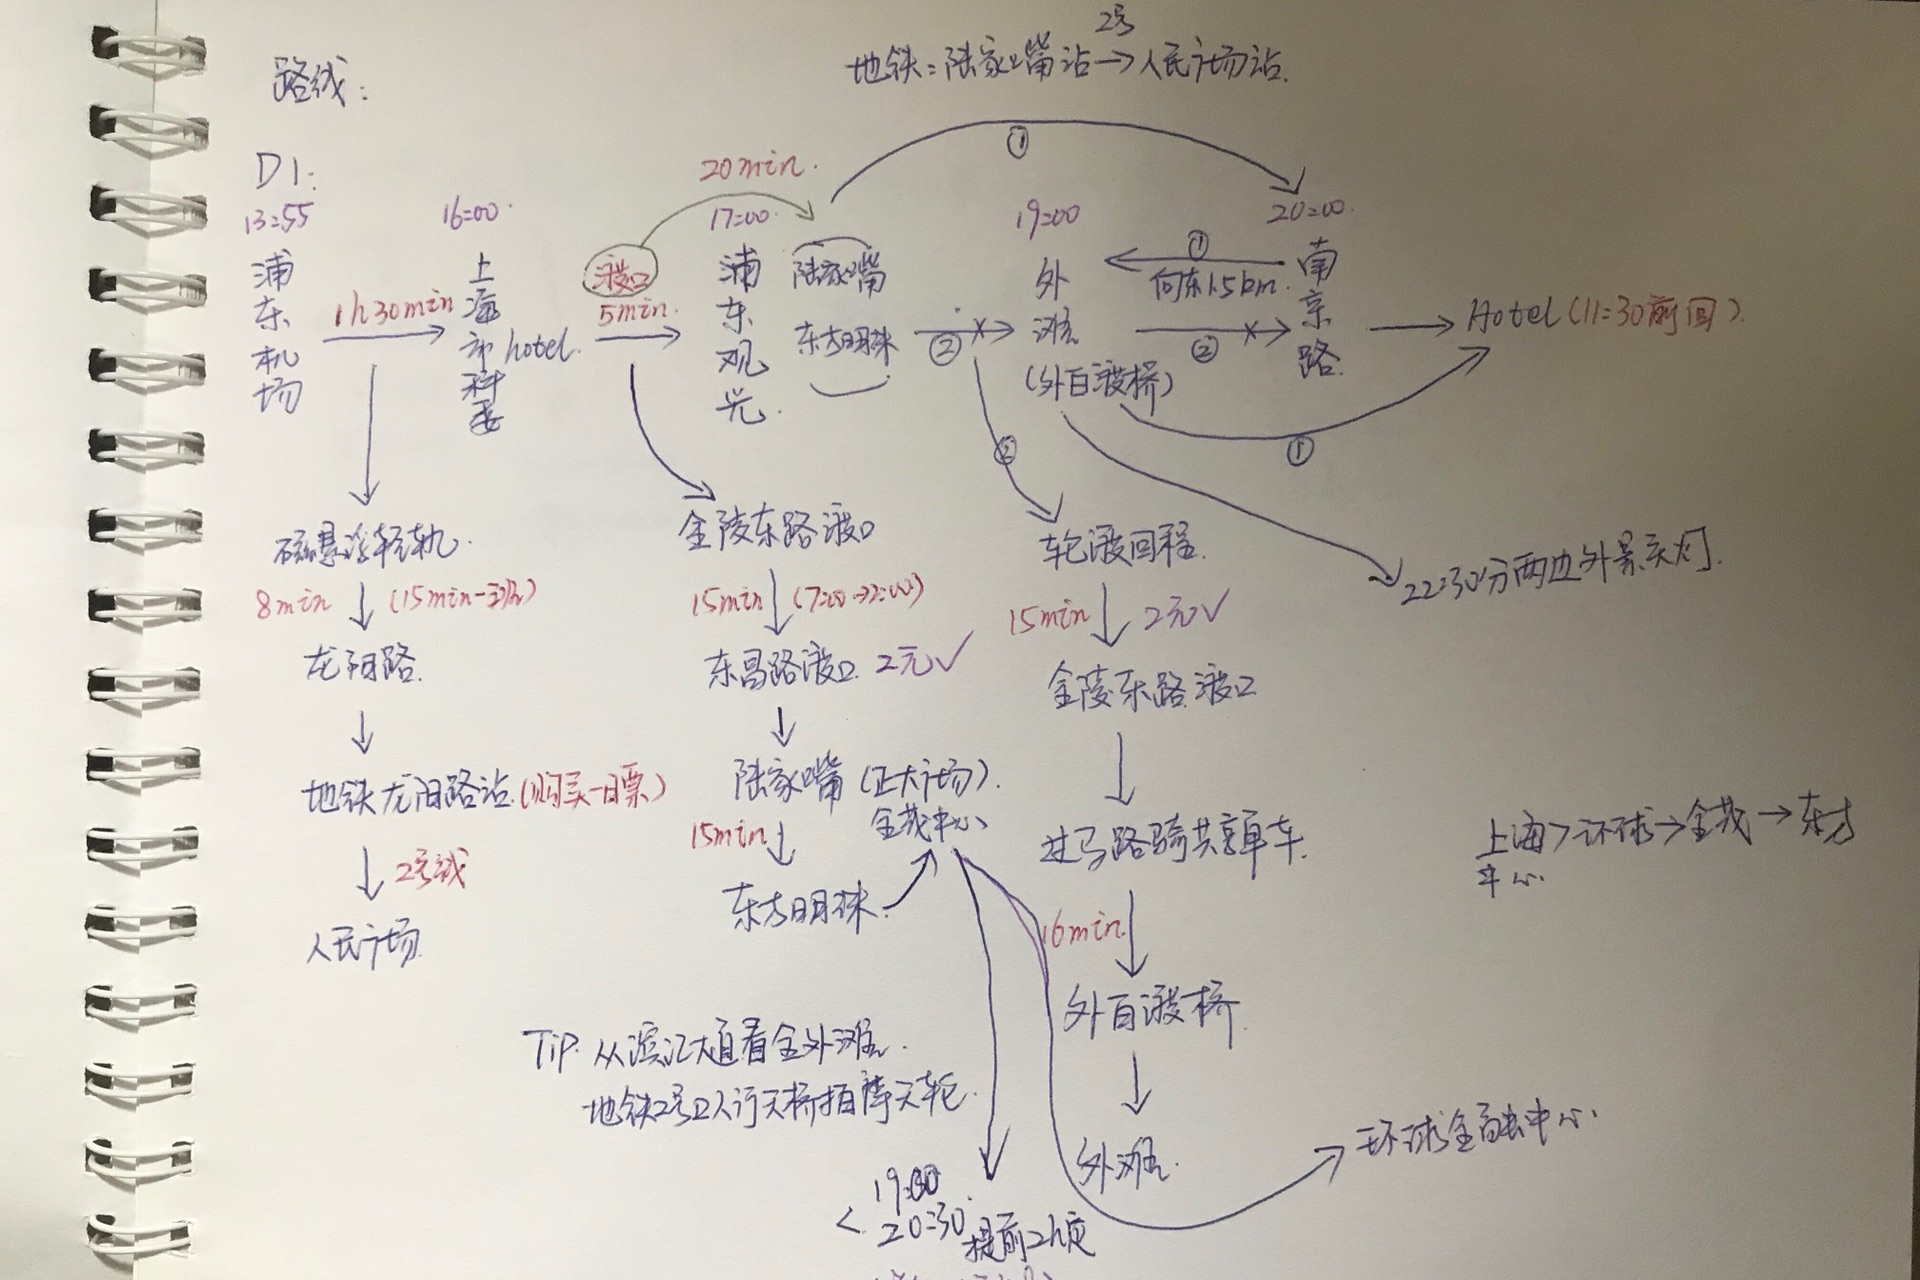 地铁：陆家嘴站→人民广场站.
2号
路线：
D1:
20min.
①
13:55
16:00
17:00
19:00
20:00
浦东机场
1h30min
上海市科委
hotel.
渡口
5min.
浦东观光
陆家嘴
东方明珠
②
外滩
(外白渡桥)
①
向东1.5km.
②
南京路
Hotel (11:30前回).
②
①
磁悬浮轻轨.
金陵东路渡口
轮渡回程.
22:30分两边外景关灯.
8min
(15min一班)
15min
(7:00→22:00)
15min
2元✓
龙阳路.
东昌路渡口
2元✓
金陵东路渡口
地铁龙阳路站(购买一日票)
陆家嘴(正大广场).
金茂中心
过马路骑共享单车.
2号线
15min
东方明珠.
上海中心>环球→金茂→东方
人民广场
16min
外白渡桥
Tip. 从滨江大道看全外滩.
地铁2号口人行天桥拍摩天轮.
外滩.
环球金融中心.
19:00
< 20:30. 提前2h定